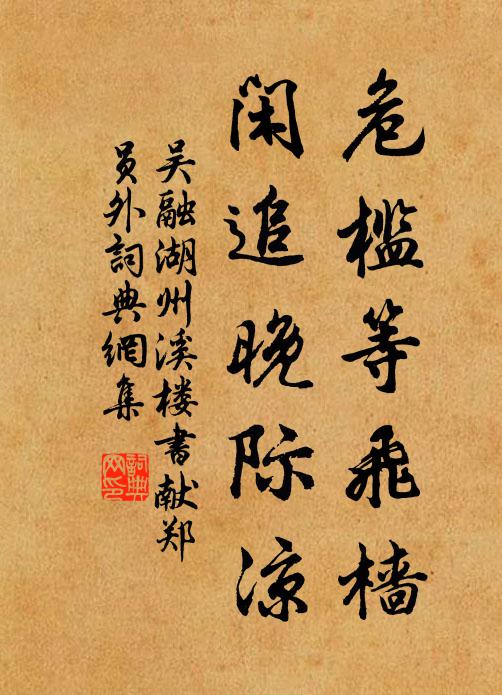 危槛等飞樯
闲追晚际凉
吴融湖州溪楼书献郑
员外词典網集
詞典
网印